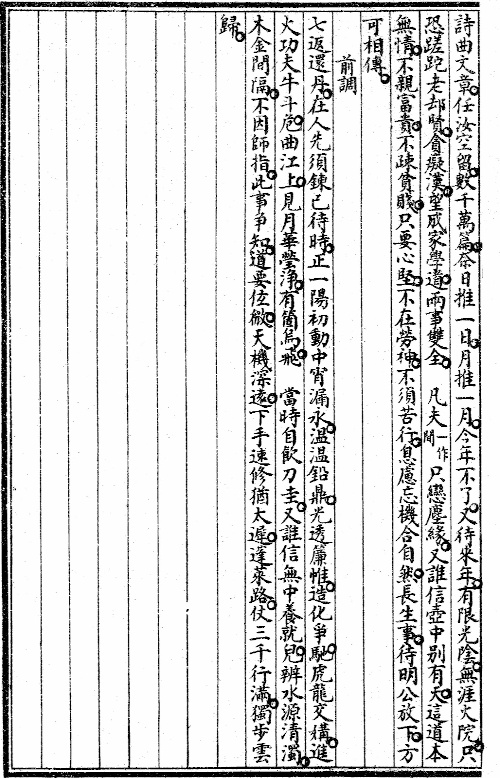 詩曲文章任汝空留數千萬篇奈日推一日月推一月今年不了又待來年有限光陰無涯火院只
恐蹉跎老却賢貪癡漢望成家學道兩事雙全　凡夫一作閒只戀塵緣又誰信壺中別有天這道本
無情不親富貴不疎貧賤只要心堅不在勞神不須苦行息慮忘機合自然長生事待明公放下方
可相傳
前調
七返還丹在人先須鍊己待時正一陽初動中宵漏永溫溫鉛鼎光透簾帷造化爭馳虎龍交媾進
火功夫牛斗危曲江上見月華瑩淨有箇烏飛　當時自飲刀圭又誰信無中養就兒辨水源清濁
木金間隔不因師指此事爭知道要㣲天機深遠下手速修猶太遲蓬萊路仗三千行滿獨步雲
歸